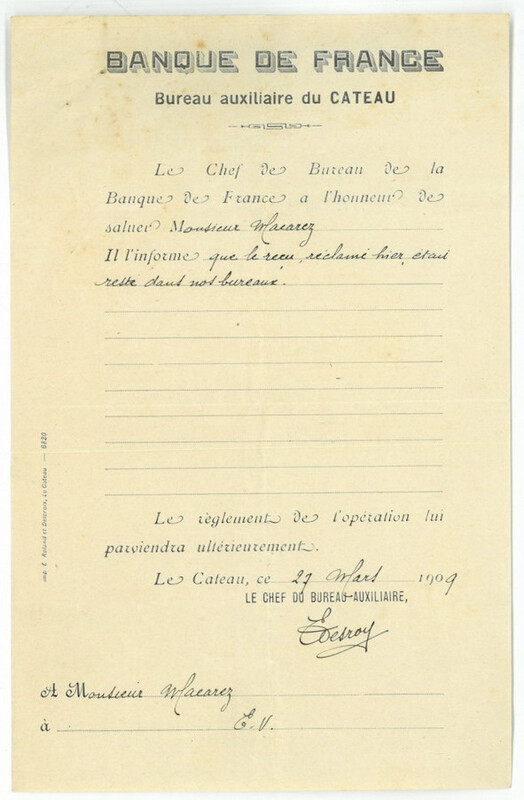 BANQUE DE FRANCE
Bureau auxiliaire du CATEAU
Le Chef de Bureau de la
Banque de France a l'honneur de
saluer Monsieur Macarez
Il l'informe que le reçu, réclamé hier, était
resté dans nos bureaux.
Le règlement de l'opération lui
parviendra ultérieurement.
Le Cateau, ce 27 Mars 1909
LE CHEF DU BUREAU AUXILIAIRE,
A Monsieur Macarez
à E.V.
Imp. E. Roland et Delacroix, Le Cateau — 6820